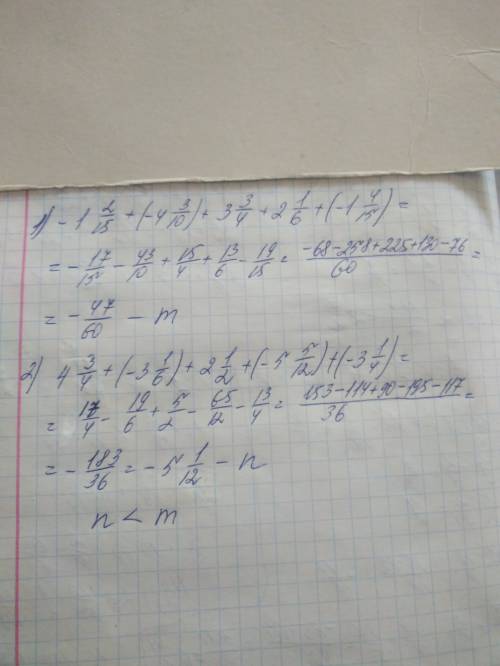 1) -1 2/15 + (-4 3/10) + 3 3/4 + 2 1/6 + (-1 4/15) =
= - 17/15 - 43/10 + 15/4 + 13/6 - 19/15 = (-68-258+225+130-76)/60 =
= - 47/60 - m
2) 4 3/4 + (-3 1/6) + 2 1/2 + (-5 5/12) + (-3 1/4) =
= 17/4 - 19/6 + 5/2 - 65/12 - 13/4 = (153-114+90-195-117)/36 =
= - 183/36 = -5 1/12 - n
n < m